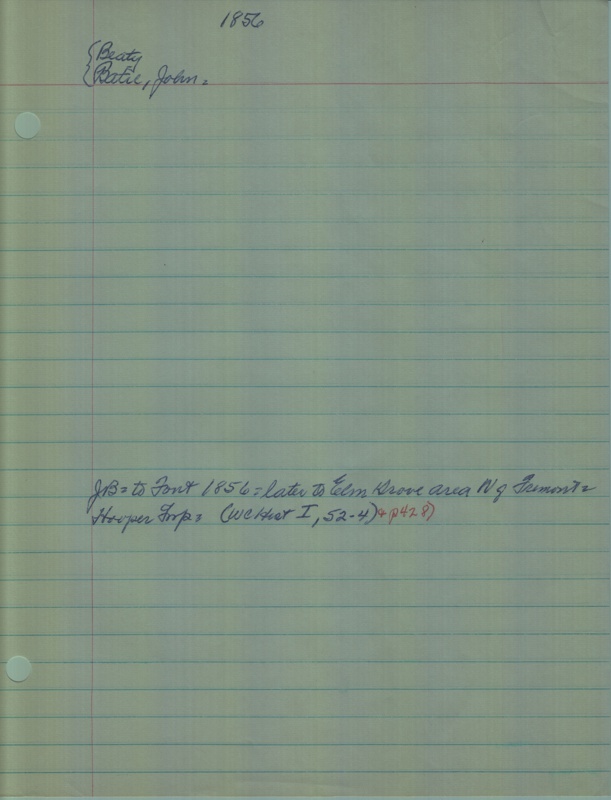 1856
{Beaty
{Batie, John =
JB = to Font 1856 = later to Elm Grove area N of Fremont =
Hooper Twp = (WC Hist I, 52-4) & p428)